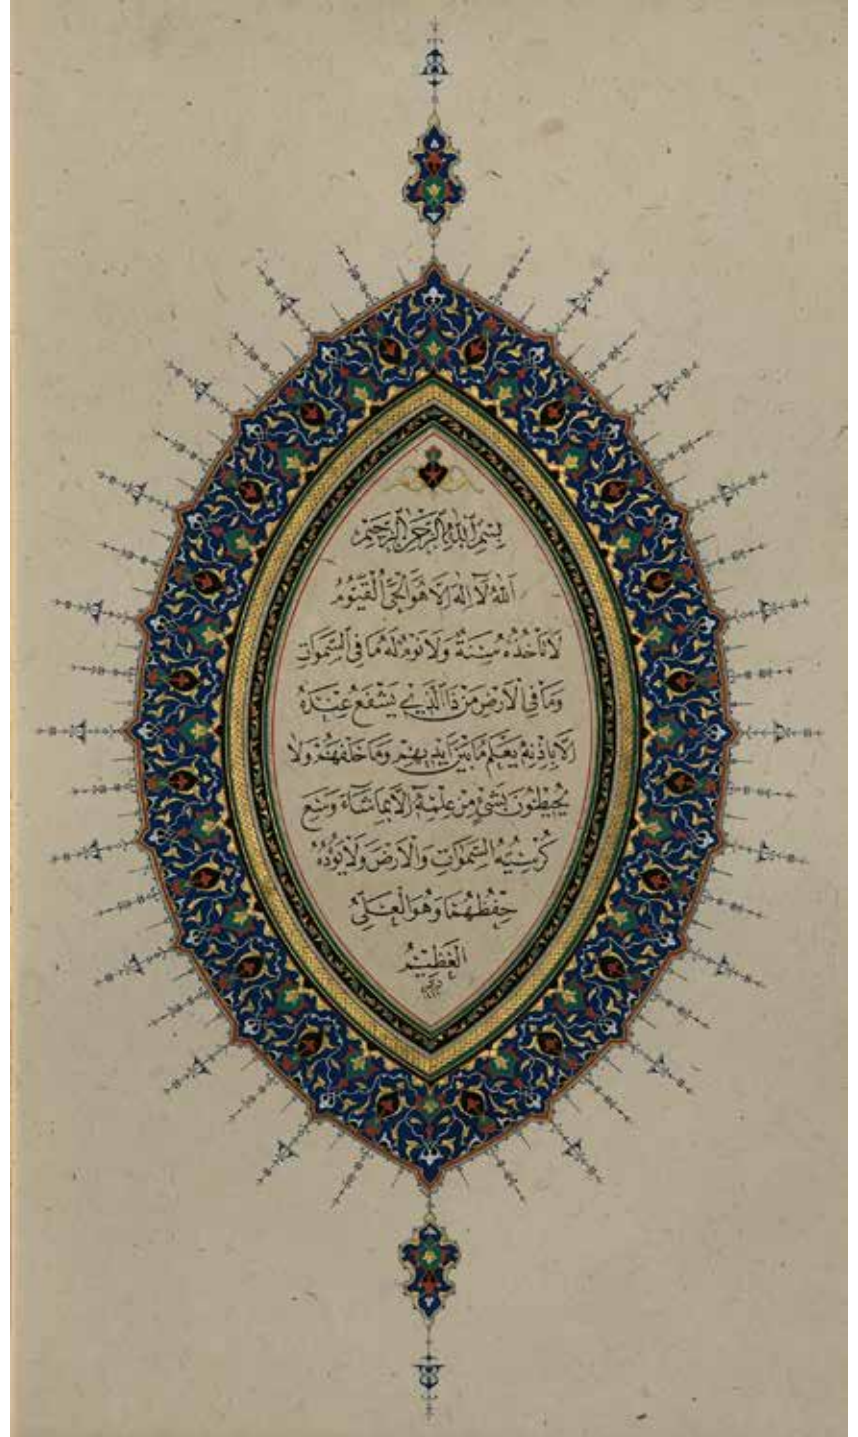 بِسْمِ اللهِ الرَّحْمٰنِ الرَّحِيْمِ
اَللهُ لَآ اِلٰهَ اِلَّا هُوَ الْحَيُّ الْقَيُّوْمُ
لَا تَأْخُذُهٗ سِنَةٌ وَلَا نَوْمٌ لَهٗ مَا فِي السَّمٰوَاتِ
وَمَا فِي الْاَرْضِ مَنْ ذَا الَّذِيْ يَشْفَعُ عِنْدَهٗ
اِلَّا بِاِذْنِهٖ يَعْلَمُ مَا بَيْنَ اَيْدِيْهِمْ وَمَا خَلْفَهُمْ وَلَا
يُحِيْطُوْنَ بِشَيْءٍ مِنْ عِلْمِهٖٓ اِلَّا بِمَا شَآءَ وَسِعَ
كُرْسِيُّهُ السَّمٰوَاتِ وَالْاَرْضَ وَلَا يَؤُدُهٗ
حِفْظُهُمَا وَهُوَ الْعَلِيُّ
الْعَظِيْمُ